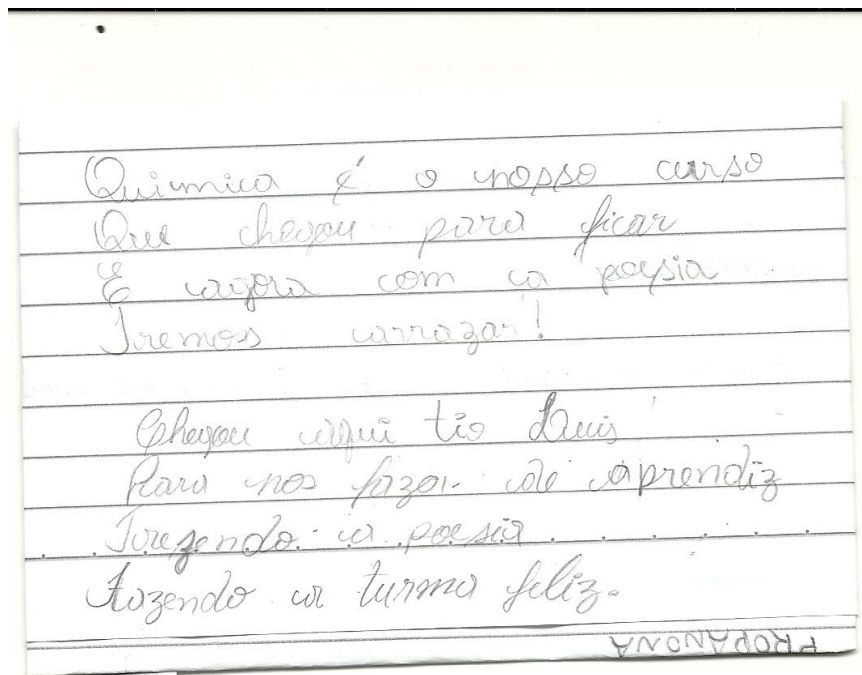 Quimica é o nosso curso
Que chegou para ficar
E agora com a poesia
Iremos arrazar!
Chegou aqui tio Luis
Para nos fazer de aprendiz
Trazendo a poesia
Fazendo a turma feliz.
PROPANONA